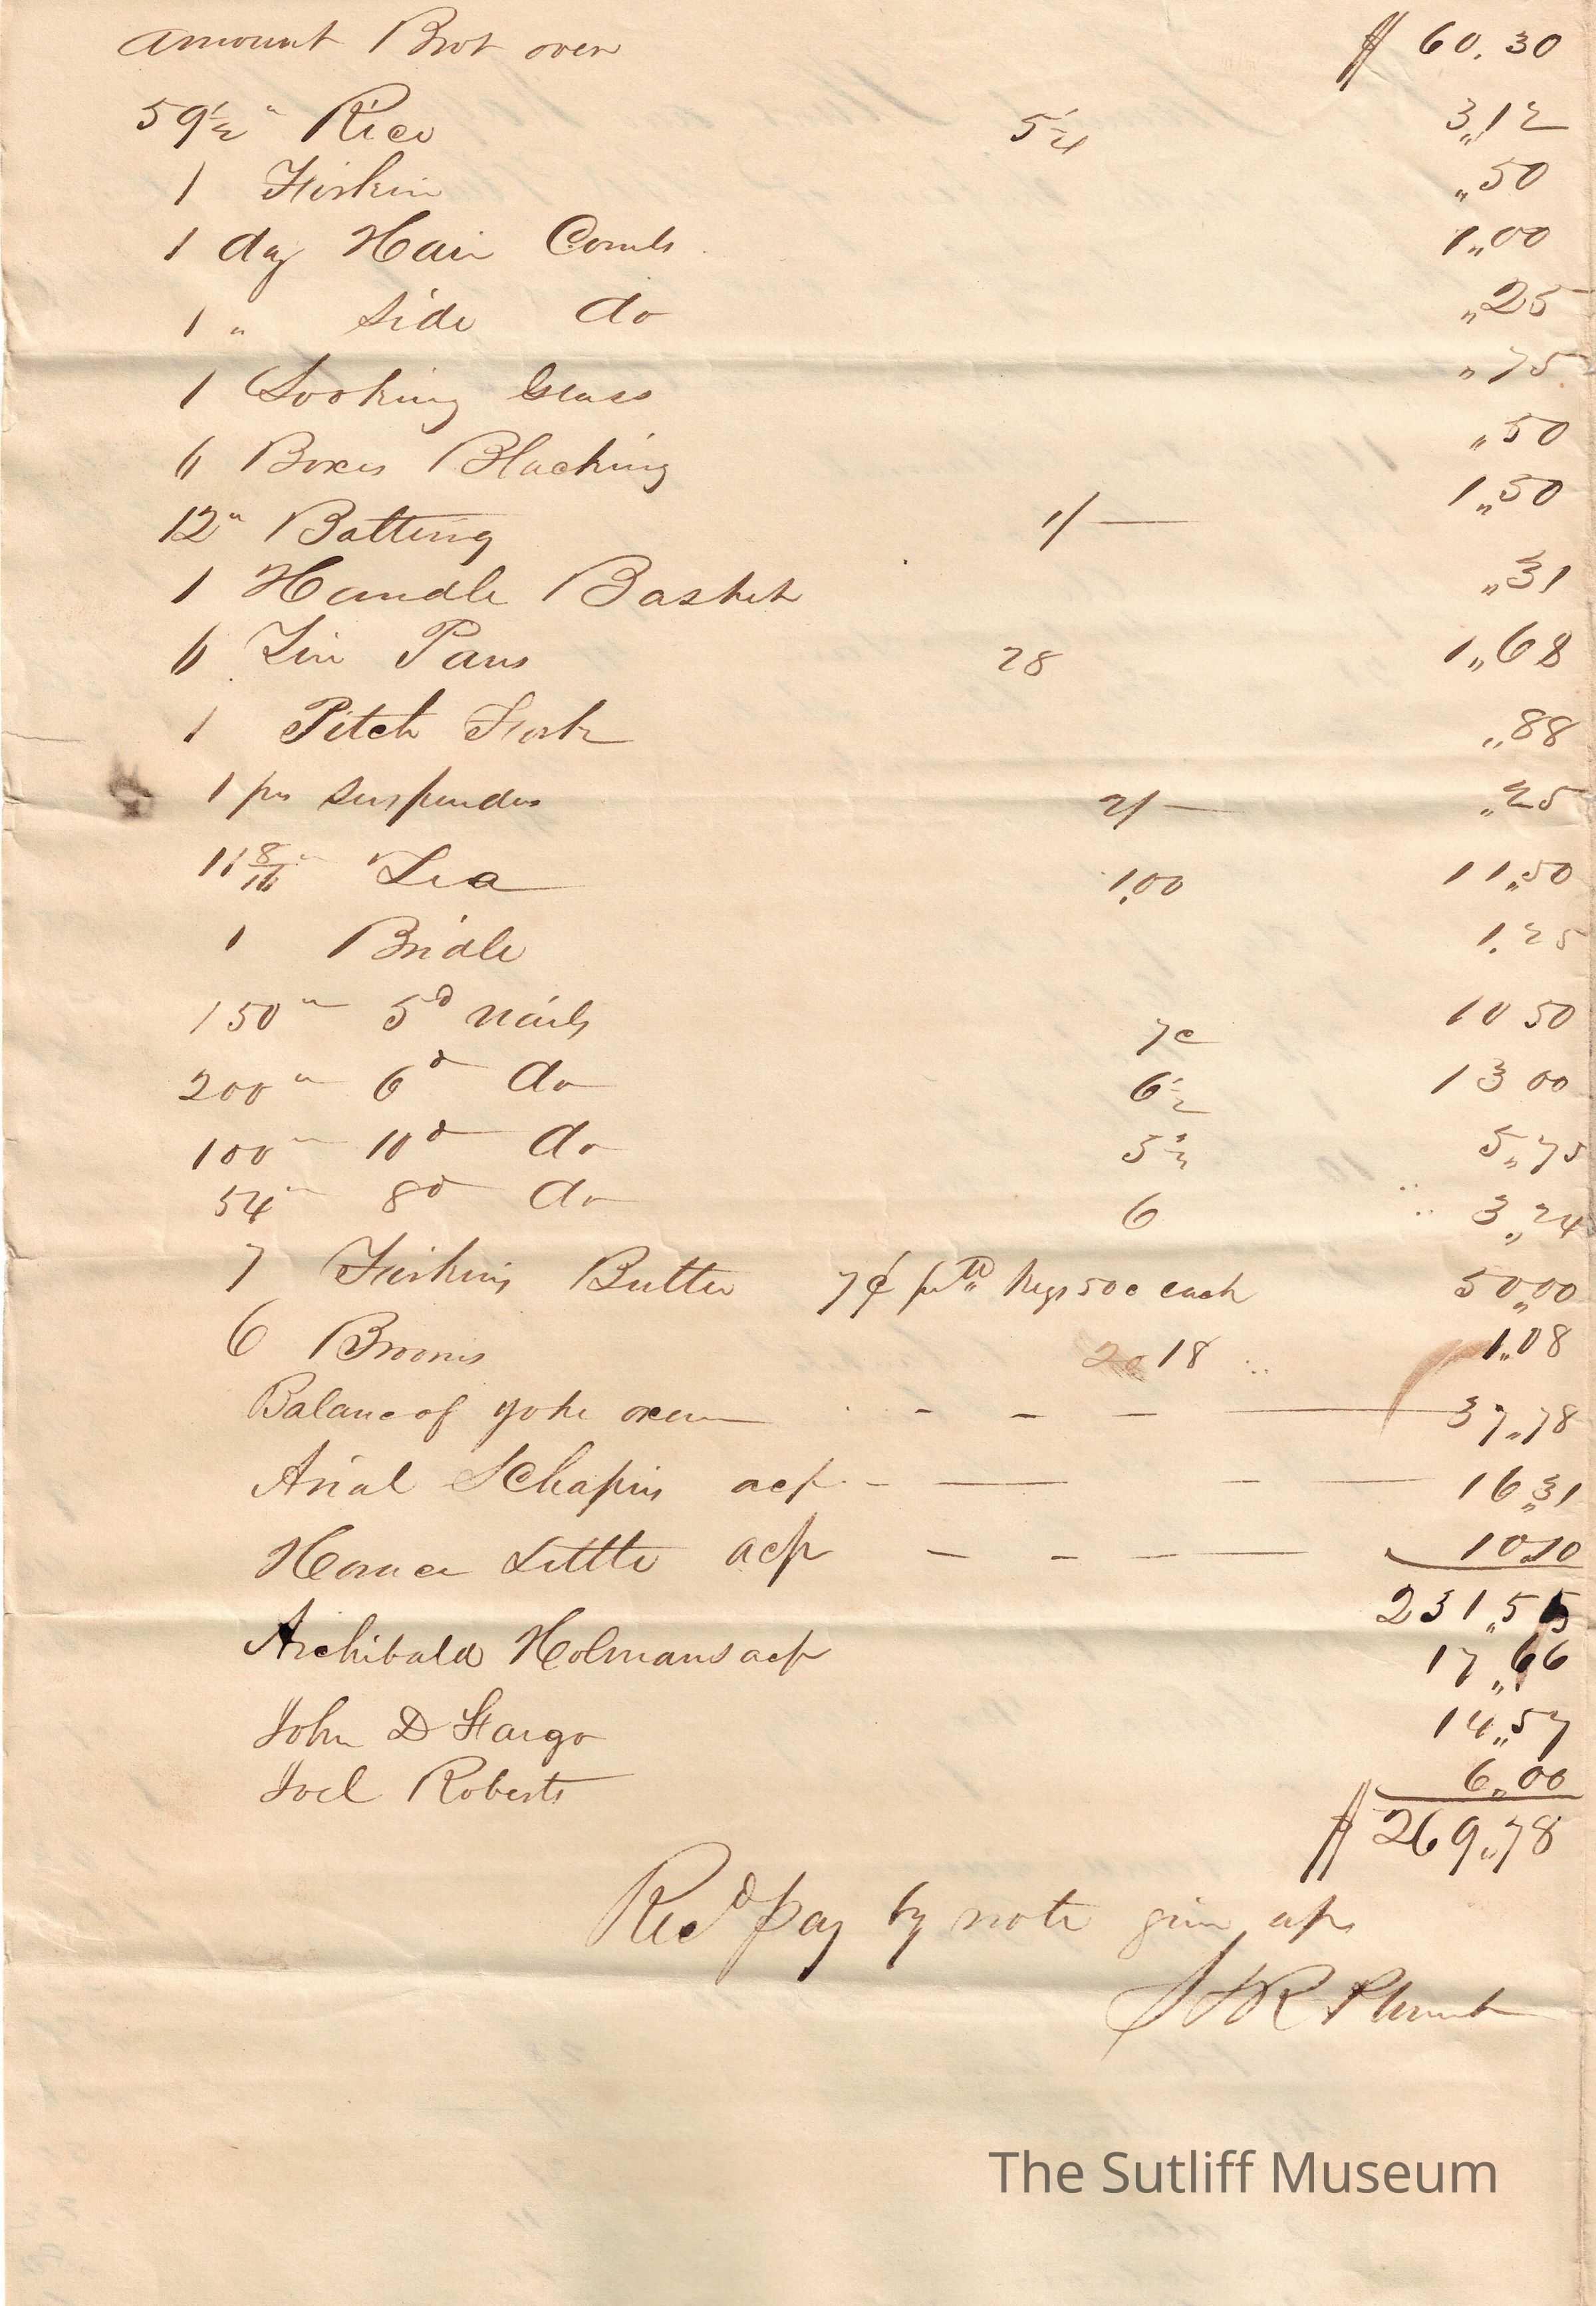 Amount Brot over $ 60.30
59½ " Rice 5¼ 3,,12
1 Firkin ,,50
1 doz Hair Combs 1,,00
1 " Side do ,,25
1 Looking Glass ,,75
6 Boxes Blacking ,,50
12 " Batting 1/— 1,,50
1 Handle Basket ,,31
6 Tin Pans 28 1,,68
1 Pitch Fork ,,88
1 pr Suspenders 2/— ,,25
11 8/16 " Tea 1,00 11,,50
1 Bridle 1.25
150 " 5d nails 7c 10 50
200 " 6d do 6½ 13 00
100 " 10d do 5¾ 5,,75
54 " 8d do 6 3,,24
7 Firkins Butter 7¢ pr lb Kegs 50c each 50,,00
6 Brooms 18 1,,08
Balance of yoke oxen - - - — 37,,78
Arial Chapins acp - — - — 16,,31
Horace Little acp - - - — 10,,10
231,,55
Archibald Holmans acp 17,,66
John D Fargo 14,,57
Joel Roberts 6,,00
$ 269,,78
Recd pay by note givn up
R Plumb
The Sutliff Museum